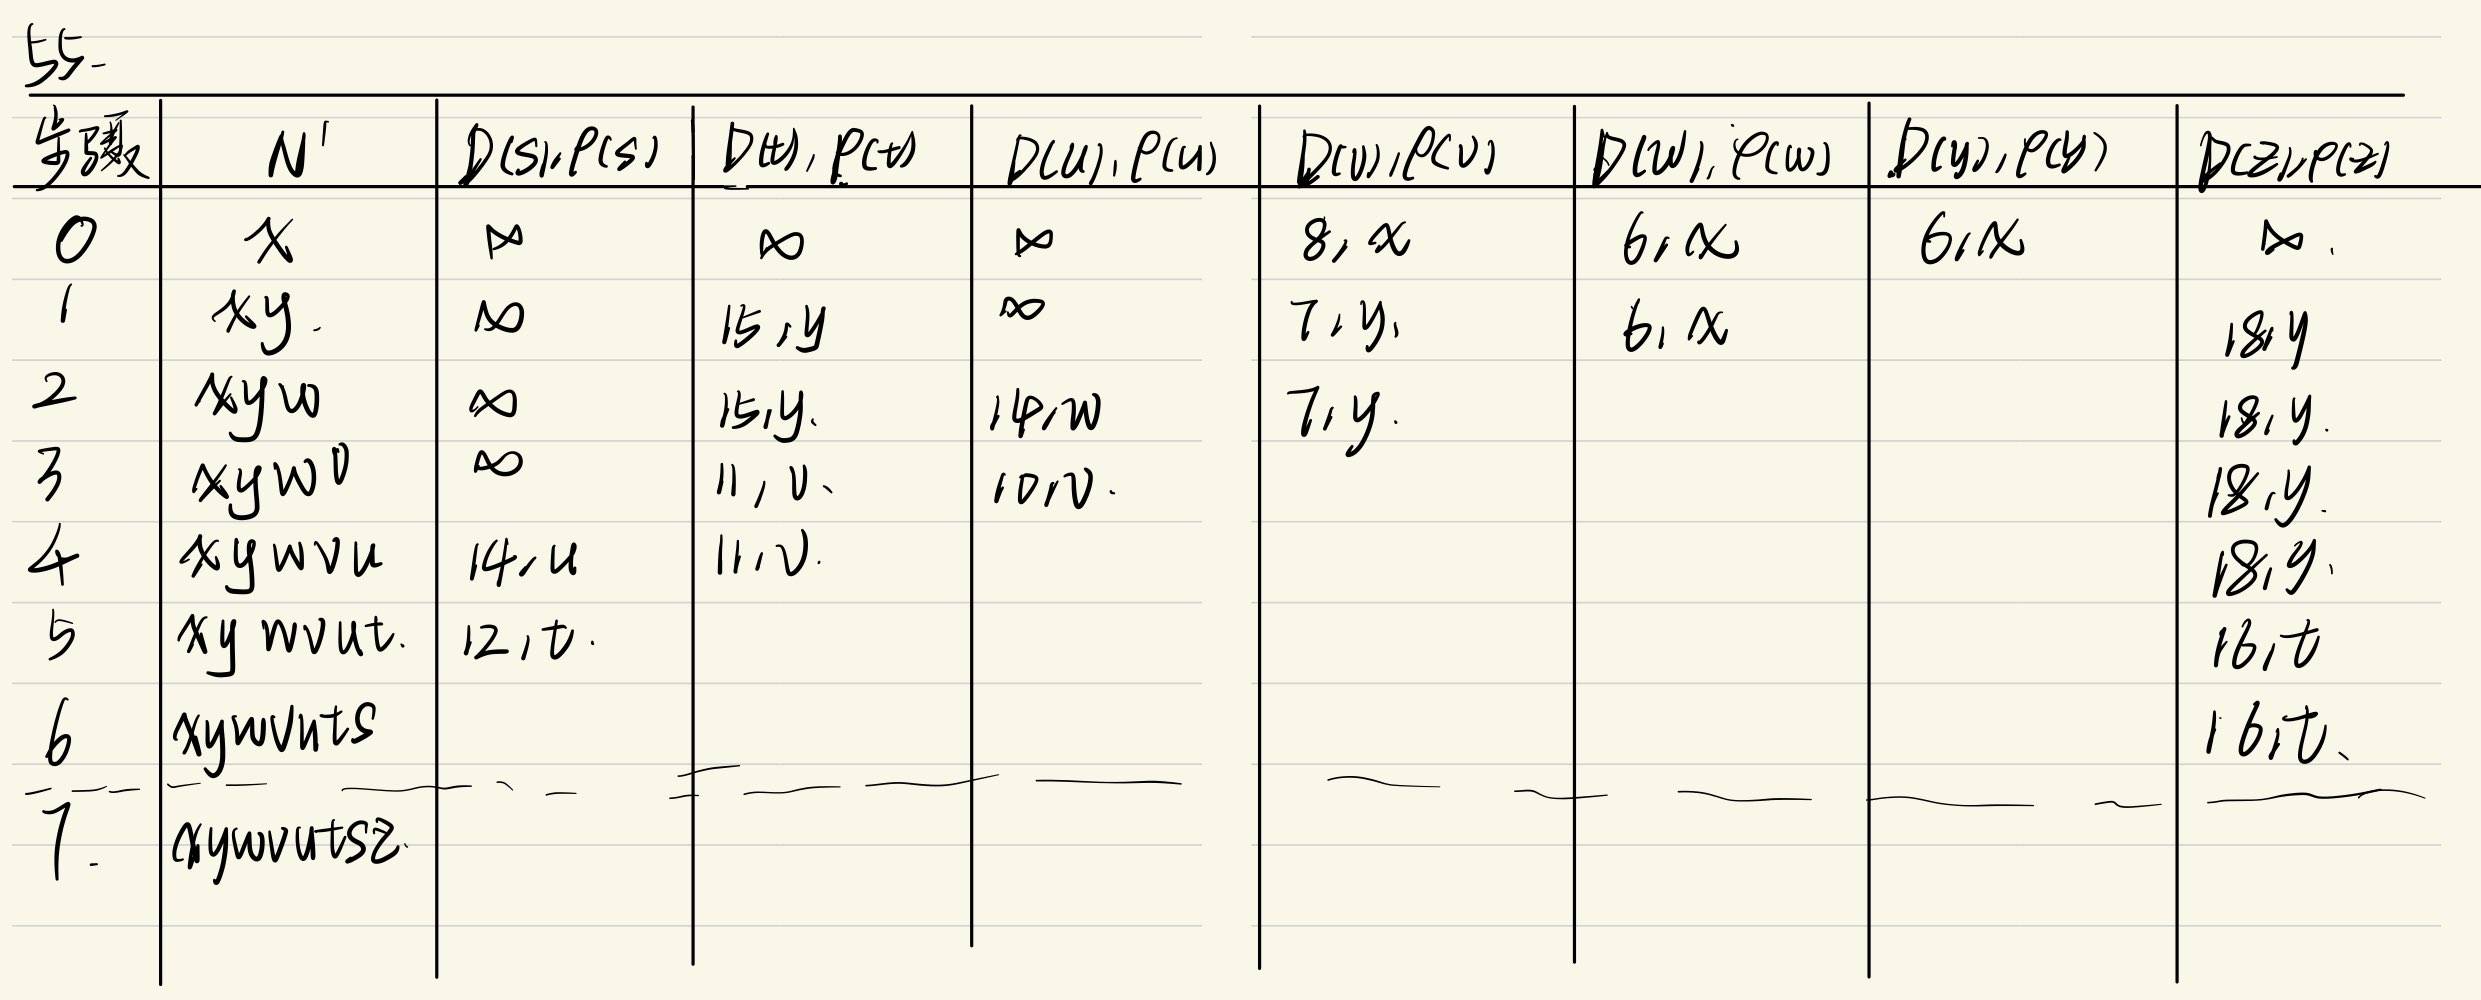 55.
步骤 N' D(s),P(s) D(t),P(t) D(u),P(u) D(v),P(v) D(w),P(w) D(y),P(y) D(z),P(z)
0 x ∞ ∞ ∞ 8,x 6,x 6,x ∞.
1 xy. ∞ 15,y ∞ 7,y. 6,x 18,y
2 xyw ∞ 15,y. 14,w 7,y. 18,y.
3 xywv ∞ 11,v. 10,v. 18,y.
4 xywvu 14,u 11,v. 18,y.
5 xywvut. 12,t. 16,t
6 xywvuts 16,t.
7. xywvutsz.